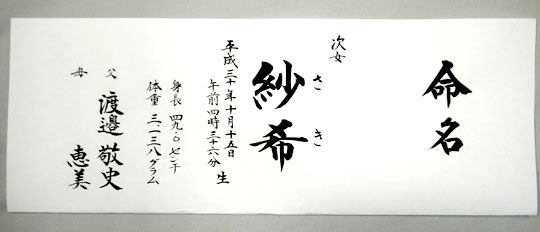 命名
次女
紗希
さき
平成三十年十月十五日
午前四時三十六分 生
身長 四九・〇センチ
体重 三一三八グラム
父 渡邉 敬史
母 恵美